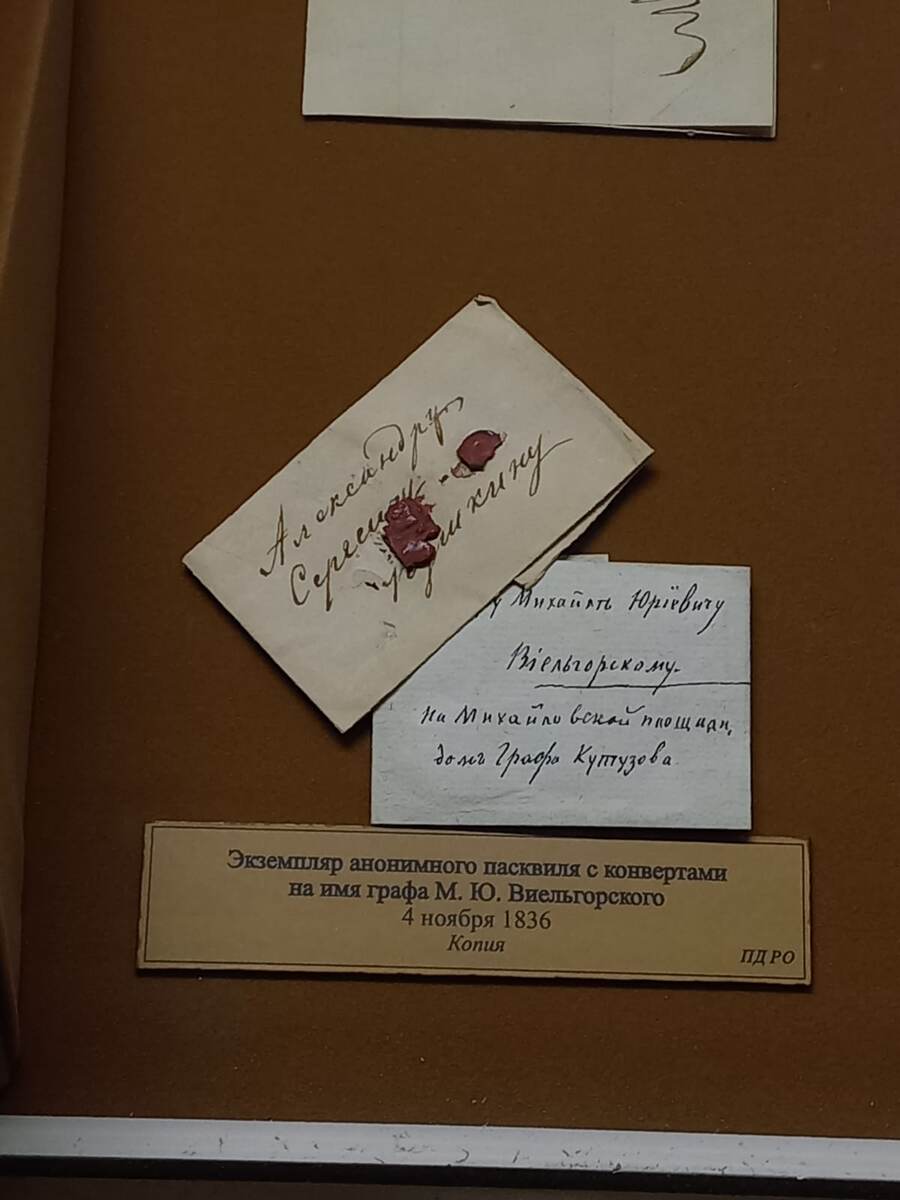 Александру
Сергеичу
Пушкину
у Михайлѣ Юріевичу
Віельгорскому.
На Михайловской площади,
домъ Графа Кутузова
Экземпляр анонимного пасквиля с конвертами
на имя графа М. Ю. Виельгорского
4 ноября 1836
Копия
ПД РО